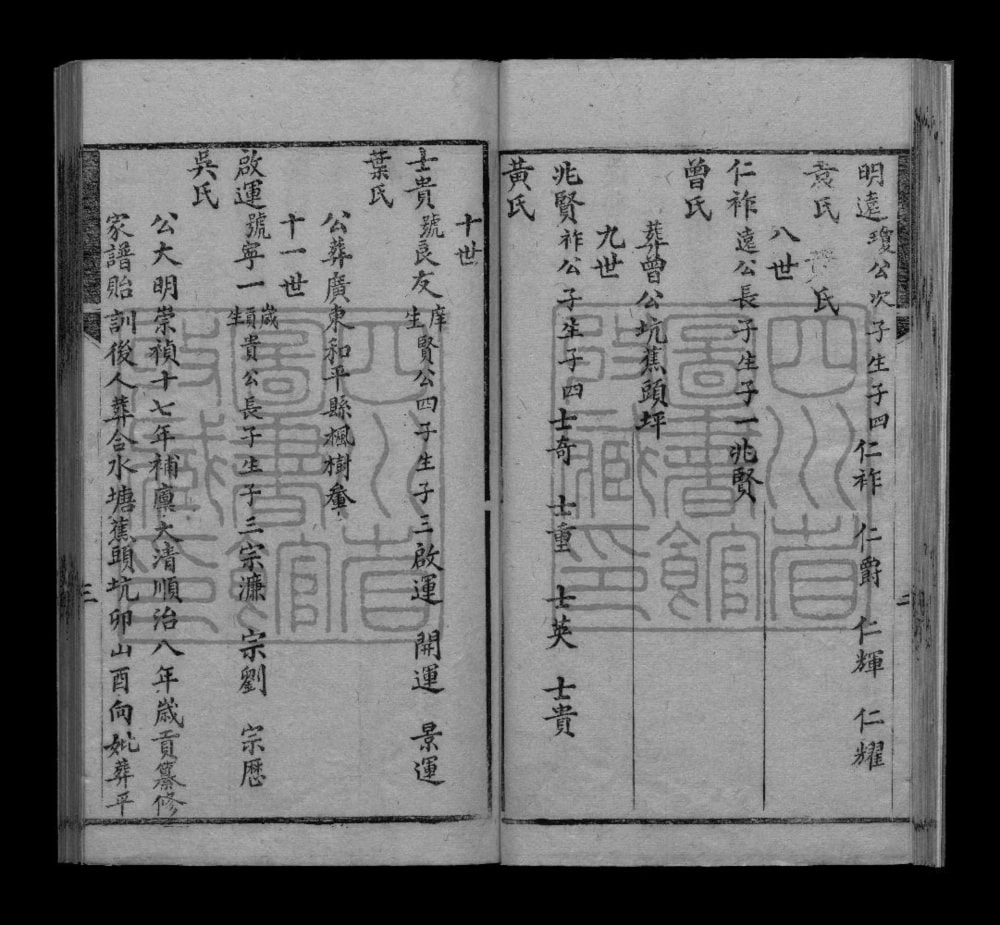 明遠瓊公次子生子四仁祚 仁爵 仁輝 仁耀
袁氏 黃氏
八世
仁祚遠公長子生子一兆賢
曾氏
葬曾公坑蕉頭坪
九世
兆賢祚公子生子四士奇 士重 士英 士貴
黃氏
二
十世
士貴號良友庠生賢公四子生子三啟運 開運 景運
葉氏
公葬廣東和平縣楓樹
十一世
啟運號寧一歲貢生貴公長子生子三宗濂 宗劉 宗歷
吳氏
公大明崇禎十七年補廪大清順治八年歲貢纂修
家譜貽訓後人葬合水塘蕉頭坑卯山酉向妣葬平
三
四川省
圖書館
藏印